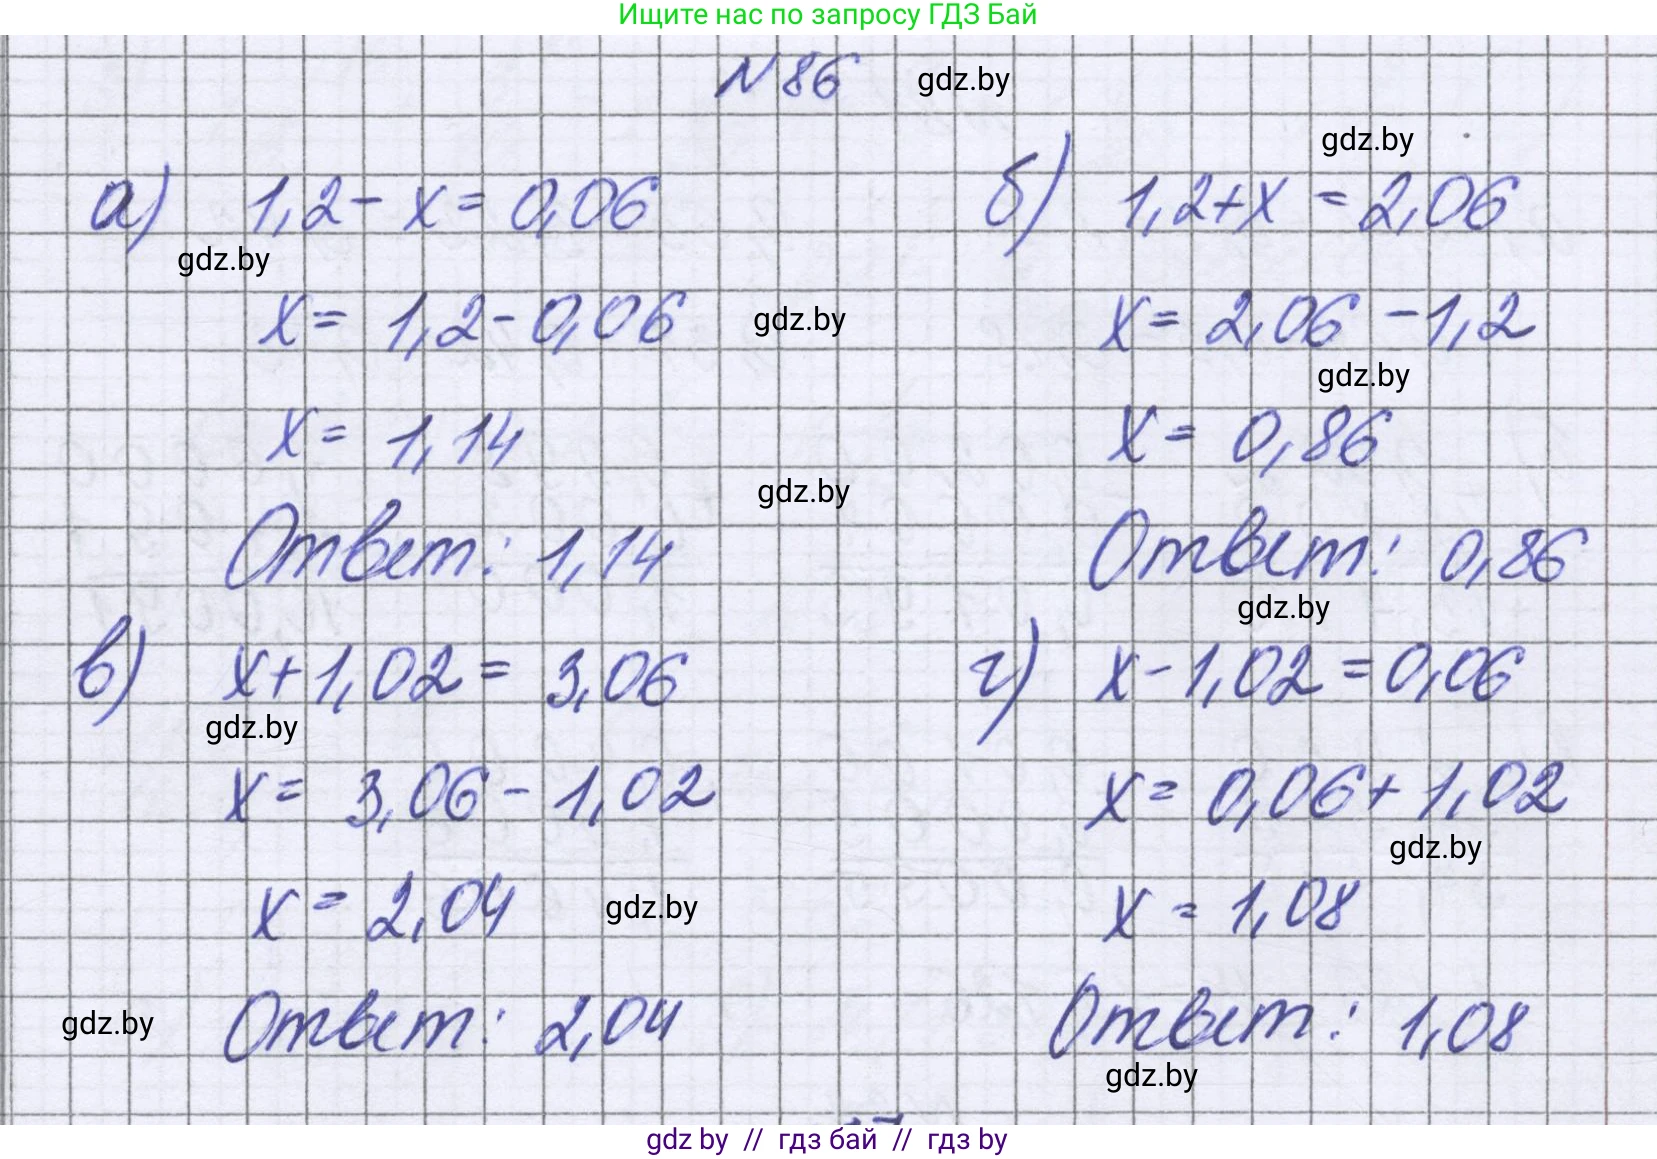 Ищите нас по запросу ГДЗ Бай
N 86 gdz.by
gdz.by
а) 1,2 - x = 0,06
б) 1,2 + x = 2,06
gdz.by
x = 1,2 - 0,06 gdz.by
x = 2,06 - 1,2
gdz.by
x = 1,14
x = 0,86
gdz.by
Ответ: 1,14
Ответ: 0,86
gdz.by
в) x + 1,02 = 3,06
г) x - 1,02 = 0,06
gdz.by
x = 3,06 - 1,02
x = 0,06 + 1,02
gdz.by
x = 2,04 gdz.by
x = 1,08
gdz.by Ответ: 2,04
Ответ: 1,08
gdz.by
gdz by // гдз бай // гдз by